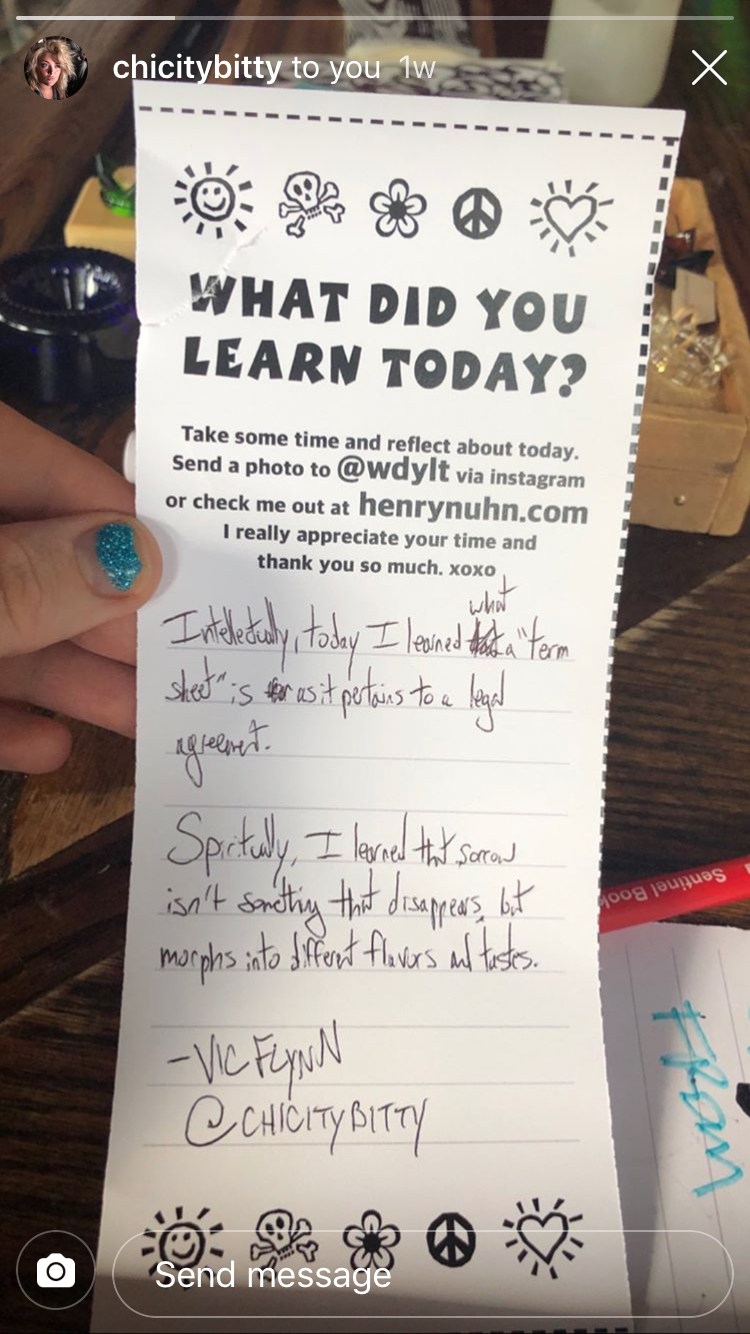 chicitybitty to you 1w
WHAT DID YOU
LEARN TODAY?
Take some time and reflect about today.
Send a photo to @wdylt via instagram
or check me out at henrynuhn.com
I really appreciate your time and
thank you so much. xoxo
what
Intellectually, today I learned a "term
sheet" is as it pertains to a legal
agreement.
Spiritually, I learned that sorrow
isn't something that disappears, but
morphs into different flavors and tastes.
-VIC FLYNN
@CHICITYBITTY
Sentinel Book
FROM
Send message